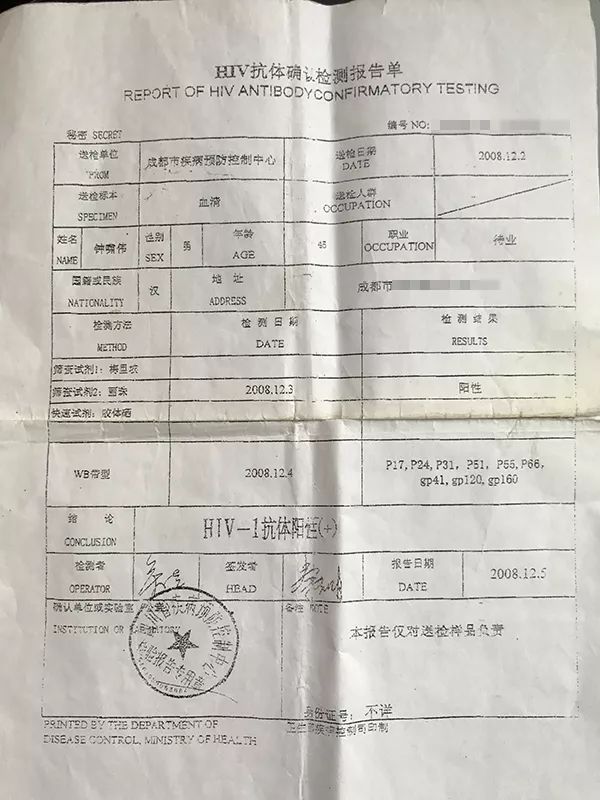 HIV抗体确认检测报告单
REPORT OF HIV ANTIBODY CONFIRMATORY TESTING
秘密 SECRET
编号 NO:
送检单位 FROM 成都市疾病预防控制中心 送检日期 DATE 2008.12.2
送检标本 SPECIMEN 血清 送检人群 OCCUPATION
姓名 NAME 钟啸伟 性别 SEX 男 年龄 AGE 45 职业 OCCUPATION 待业
国籍或民族 NATIONALITY 汉 地址 ADDRESS 成都市
检测方法 METHOD 检测日期 DATE 检测结果 RESULTS
筛查试剂1: 梅里埃
筛查试剂2: 丽珠 2008.12.3 阳性
快速试剂: 胶体硒
WB带型 2008.12.4 P17,P24,P31, P51, P55,P66,
gp41,gp120,gp160
结论 CONCLUSION HIV-1抗体阳性(+)
检测者 OPERATOR 签发者 HEAD 报告日期 DATE 2008.12.5
确认单位或实验室 备注 NOTE
INSTITUTION OR LABORATORY
疾病预防控制中心
检验报告专用章
本报告仅对送检样品负责
身份证号: 不详
PRINTED BY THE DEPARTMENT OF
DISEASE CONTROL, MINISTRY OF HEALTH
卫生部疾病控制司印制